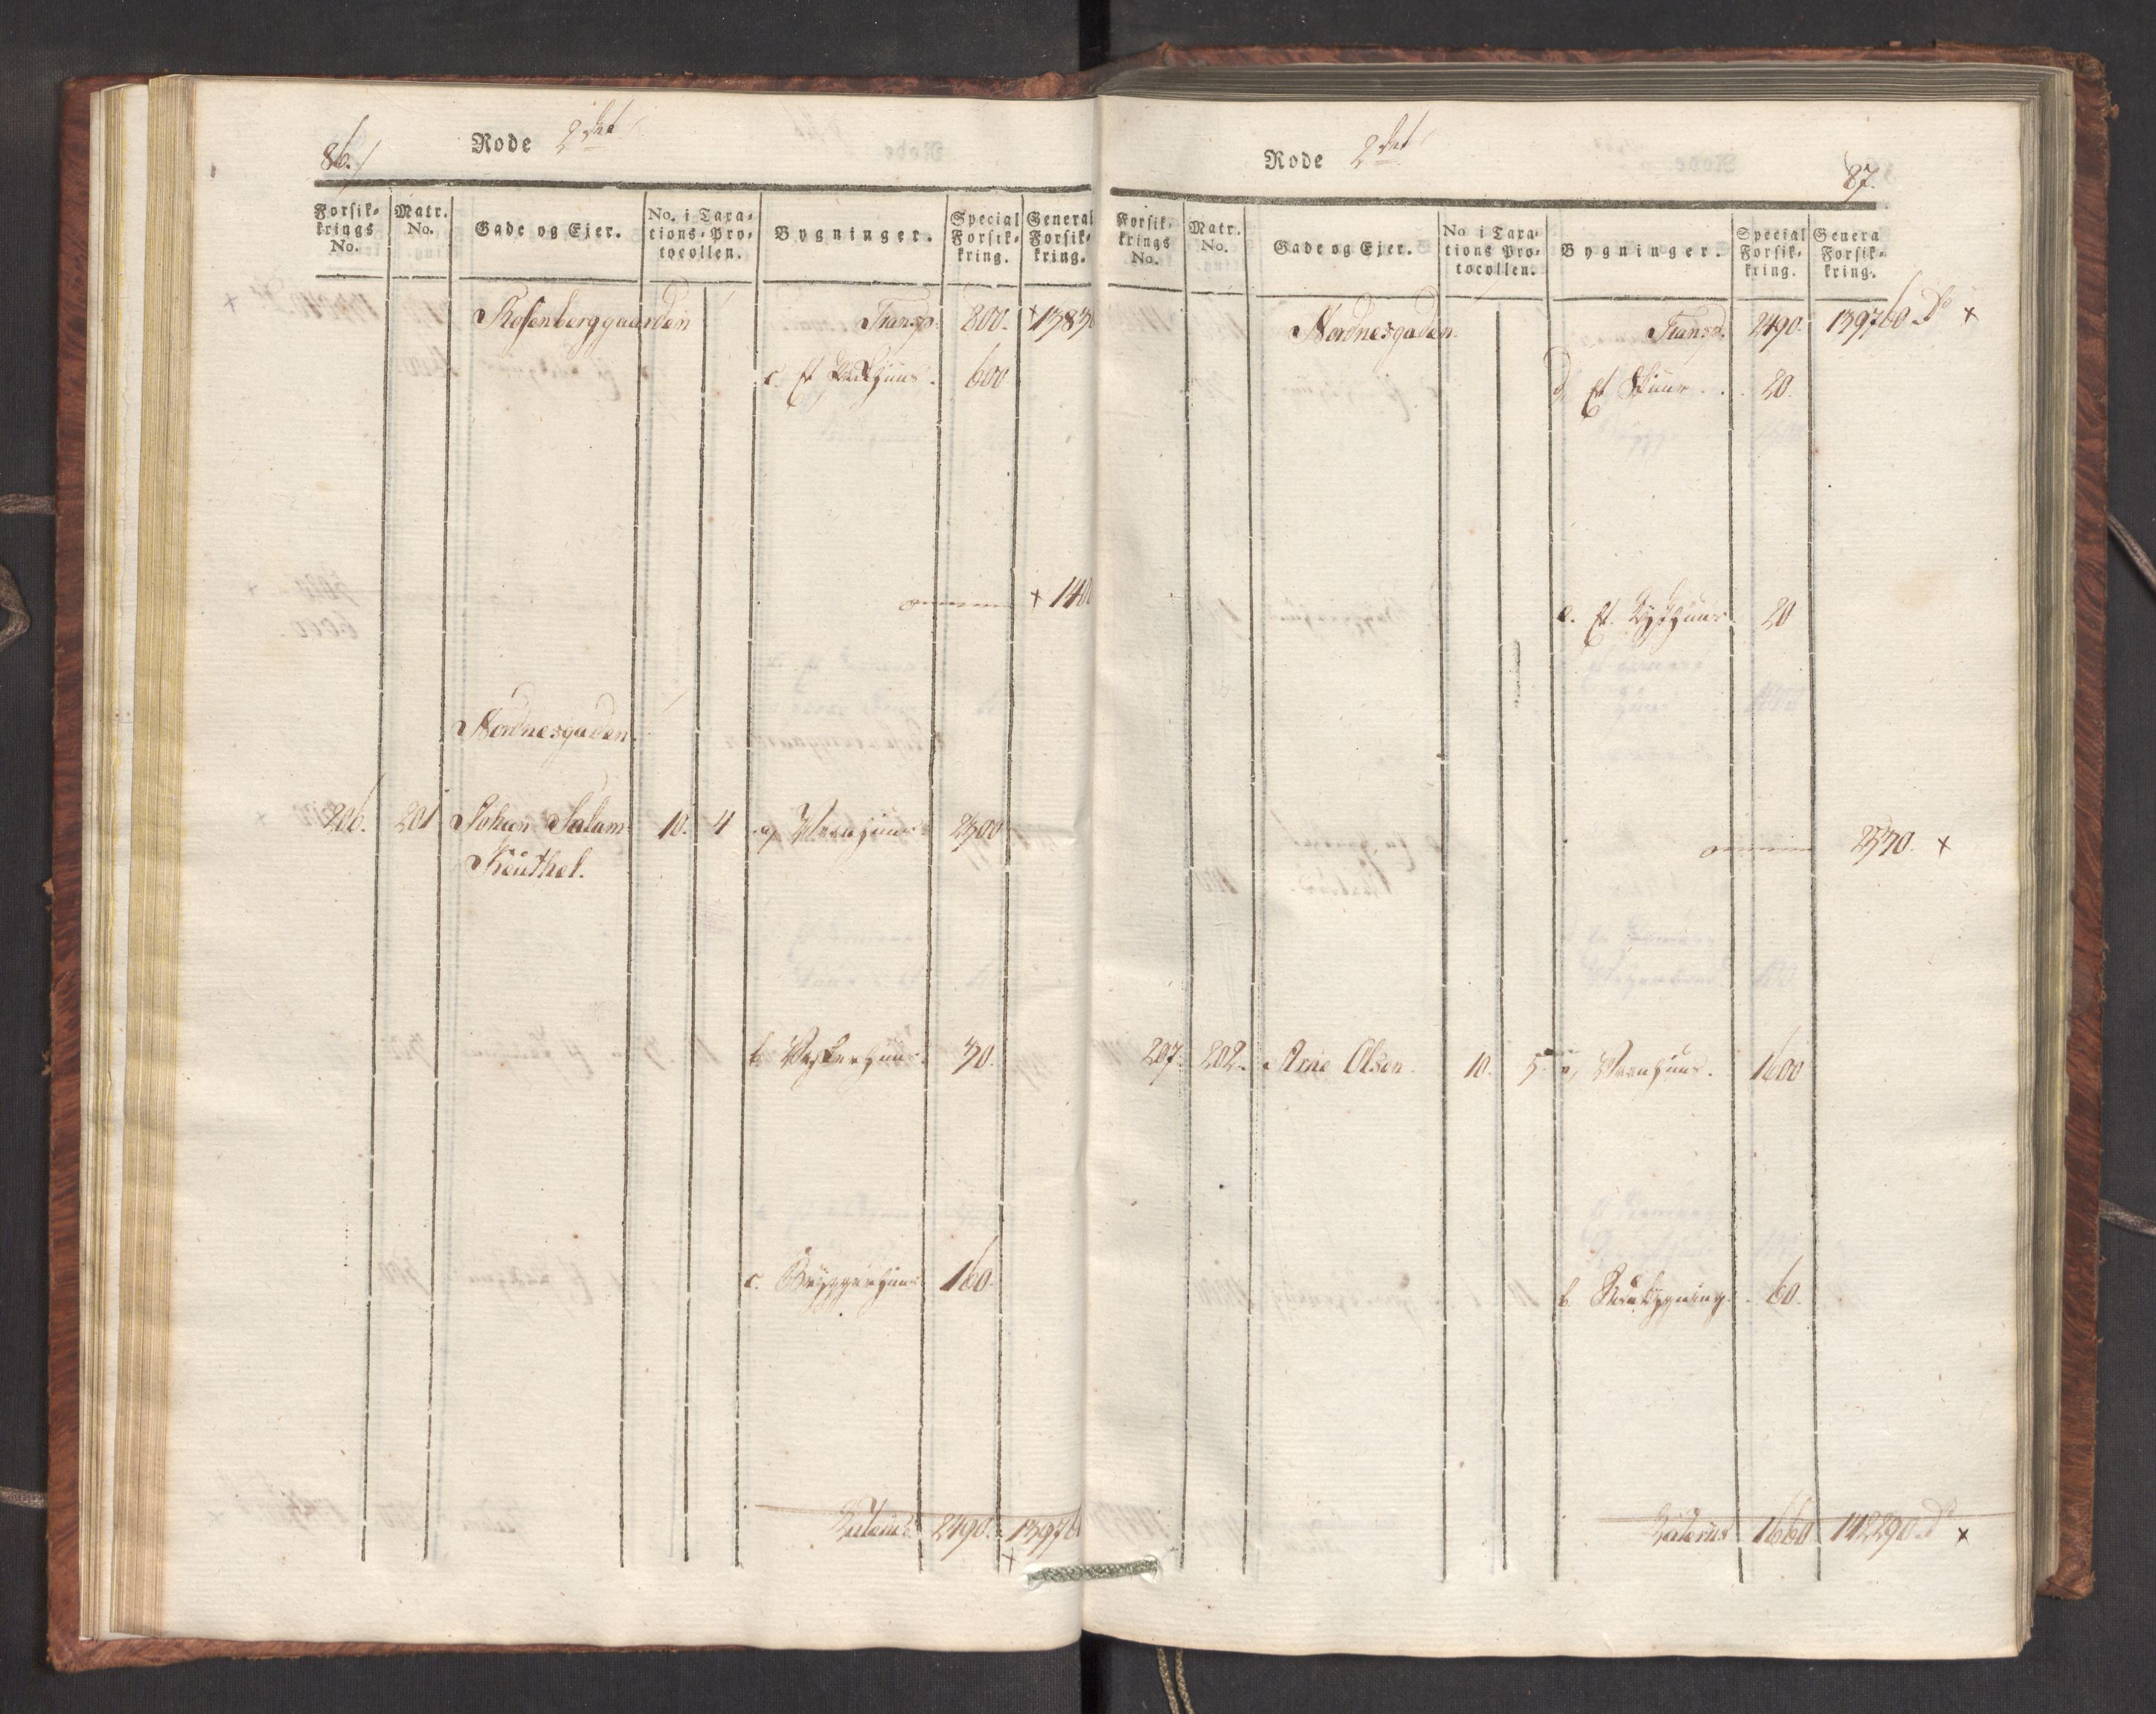 86.
Rode 2det
Forsik-
krings
No.
Matr.
No.
Gade og Ejer.
No. i Taxa-
tions-Pro-
tocollen.
Bygninger.
Special
Forsik-
kring.
General
Forsik-
kring.
Rosenberggaarden Transp. 800. 1383
c. Et Pakhuus. 600
1400
Nordnesgaden
206. 201 Johan Salam 10. 4 a, Vaanhuus 2300
Keüthel.
b. Vaskerhuus. 30.
c. Bryggerhuus 160.
Lateris 2490. 13976
Rode 2det
87.
Forsik-
krings
No.
Matr.
No.
Gade og Ejer.
No i Taxa-
tions Pro-
tocollen.
Bygninger.
Special
Forsik-
kring.
Genera
Forsik-
kring.
Nordnesgaden. Transp. 2490. 139760 Dr
d, Et Skuur . . 20.
e. Et Lysthuus 20
2530.
207. 202. Arne Olsen. 10. 5. a, Vaanhuus. 1600
b. Bagbygning. 60.
Lateris 1660 142290 Dr